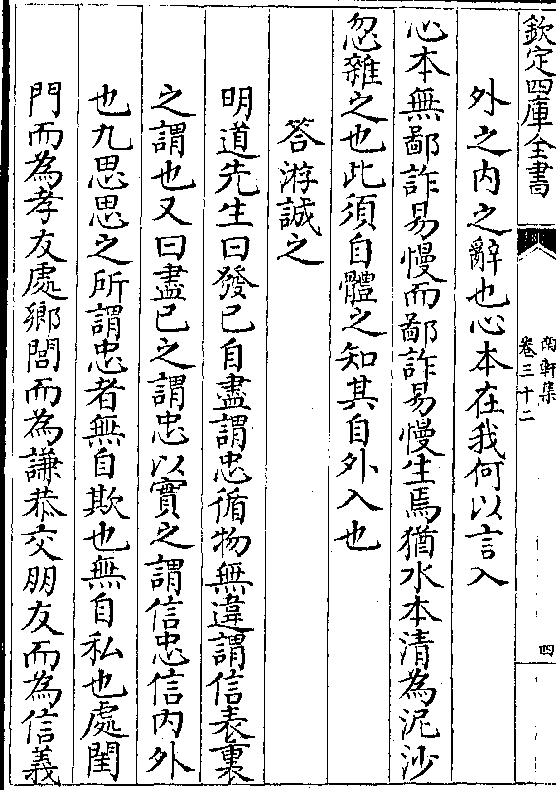 欽定四庫全書
南軒集
卷三十二
四
外之内之辭也心本在我何以言入
心本無鄙詐易慢而鄙詐易慢生焉猶水本清為泥沙
忽雜之也此須自體之知其自外入也
答游誠之
明道先生曰發已自盡謂忠循物無違謂信表裏
之謂也又曰盡已之謂忠以實之謂信忠信内外
也九思思之所謂忠者無自欺也無自私也處閨
門而為孝友處鄉閭而為謙恭交朋友而為信義